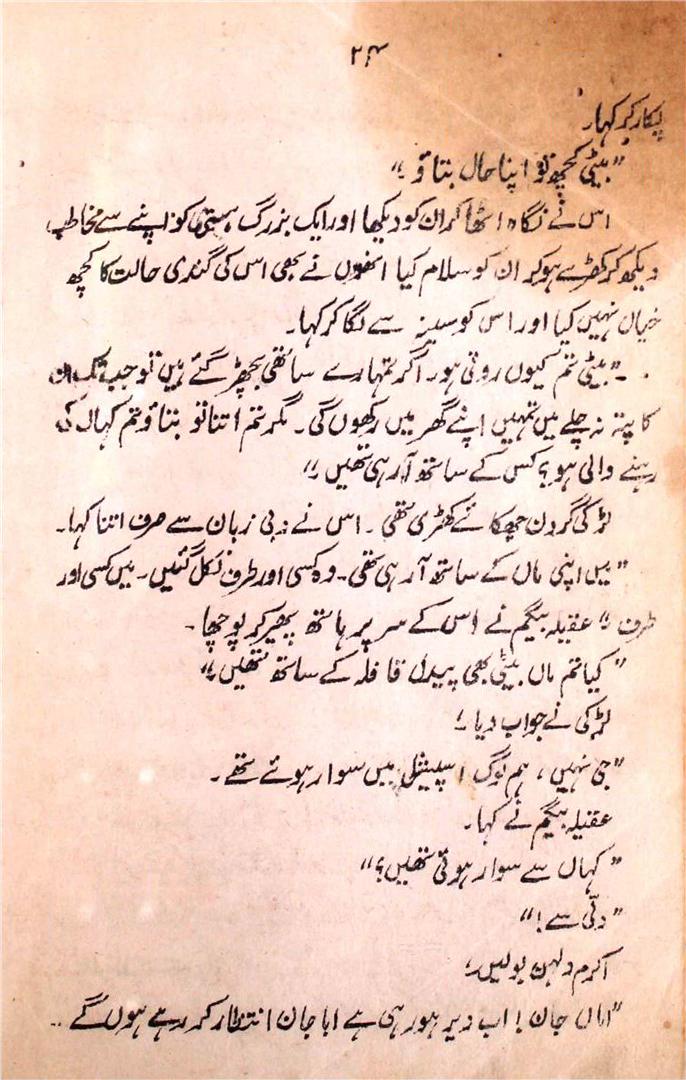 ۲۴
پکار کر کہا۔
"بیٹی کچھ تو اپنا حال بتاؤ"
اس نے نگاہ اٹھا کر ان کو دیکھا اور ایک بزرگ ہستی کو اپنے سے مخاطب
دیکھ کر کھڑے ہو کر ان کو سلام کیا انھوں نے بھی اس کی گندی حالت کا کچھ
خیال نہیں کیا اور اس کو سینہ سے لگا کر کہا۔
"بیٹی تم کیوں روتی ہو۔ اگر تمہارے ساتھی بچھڑ گئے ہیں تو جب تک ان
کا پتہ نہ چلے میں تمہیں اپنے گھر میں رکھوں گی۔ مگر تم اتنا تو بتاؤ تم کہاں کی
رہنے والی ہو؟ کس کے ساتھ آ رہی تھیں"
لڑکی گردن جھکائے کھڑی تھی۔ اس نے دبی زبان سے صرف اتنا کہا۔
"میں اپنی ماں کے ساتھ آ رہی تھی۔ وہ کسی اور طرف نکل گئیں۔ میں کسی اور
طرف" عقیلہ بیگم نے اس کے سر پر ہاتھ پھیر کر پوچھا۔
"کیا تم ماں بیٹی بھی پیدل قافلہ کے ساتھ تھیں"
لڑکی نے جواب دیا۔
"جی نہیں، ہم لوگ اسپیشل میں سوار ہوئے تھے۔
عقیلہ بیگم نے کہا۔
"کہاں سے سوار ہوئی تھیں؟"
"دلّی سے!"
اکرم دلہن بولیں۔
"اماں جان! اب دیر ہو رہی ہے ابا جان انتظار کر رہے ہوں گے۔۔